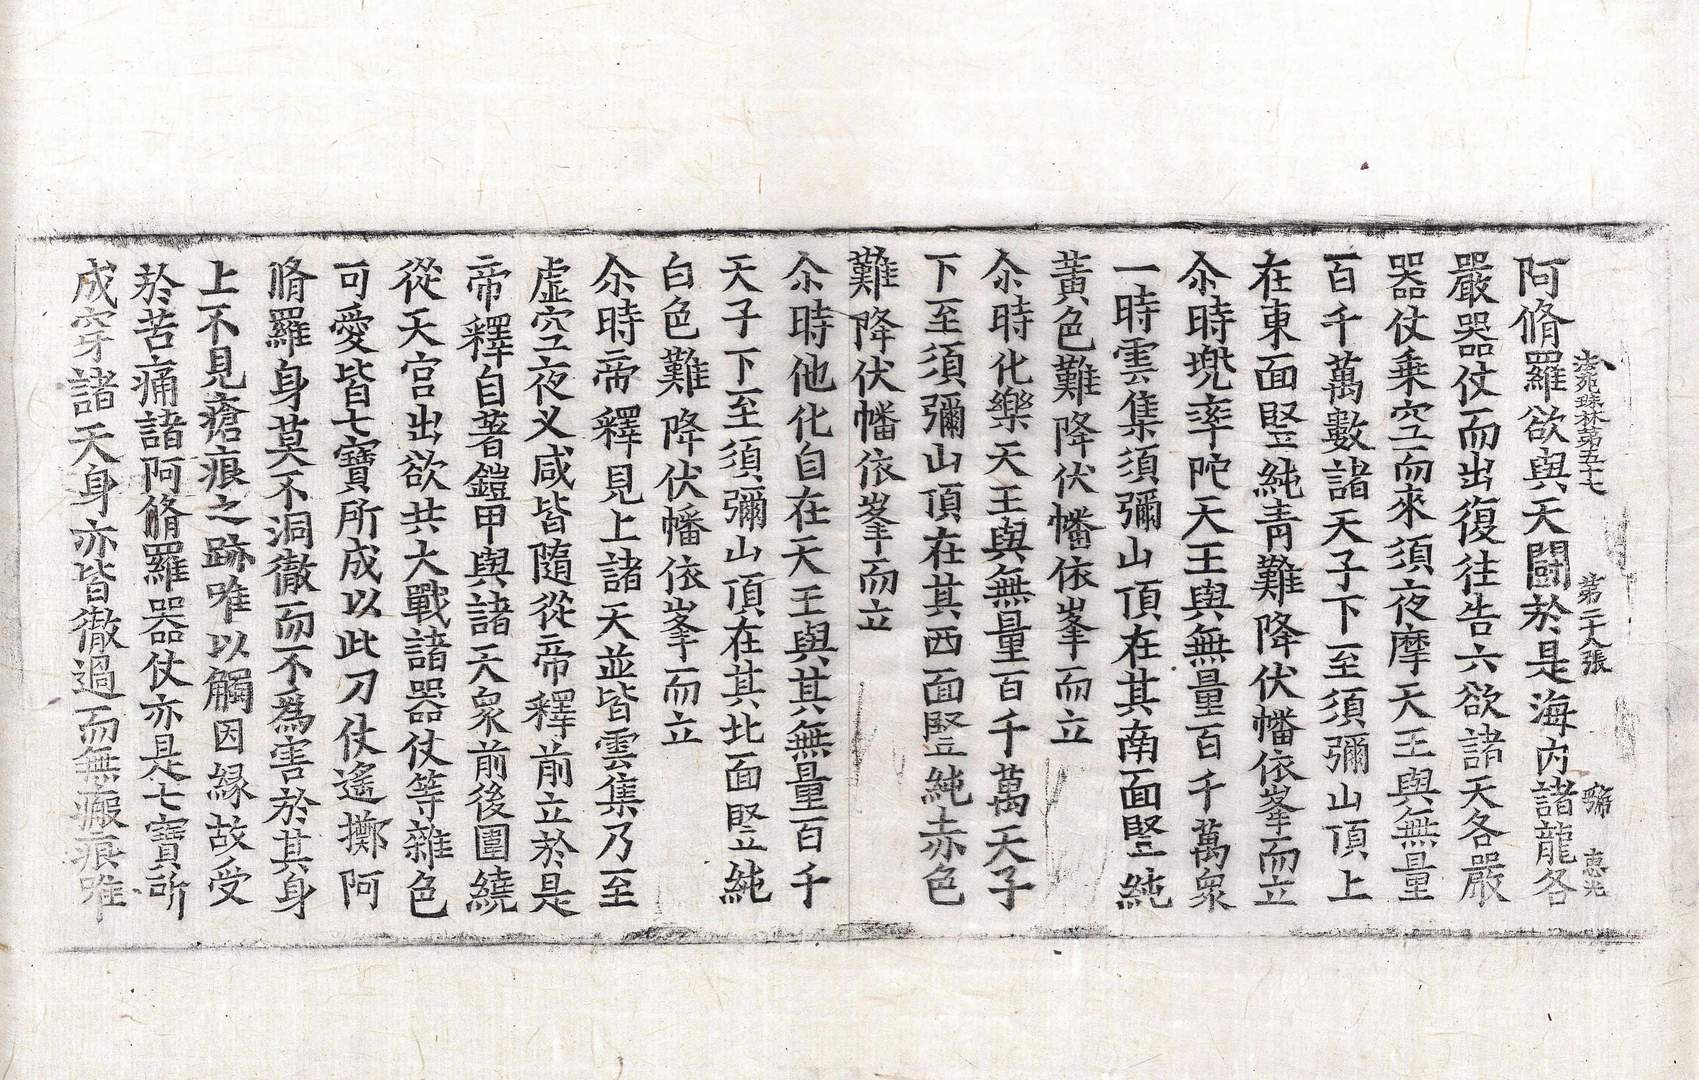 法苑珠林第五十七 第二十八張 弊 惠光
阿脩羅欲與天鬪於是海内諸龍各
嚴器仗而出復往告六欲諸天各嚴
器仗乗空而來須夜摩天王與無量
百千萬數諸天子下至須彌山頂上
在東面竪純青難降伏幡依峯而立
尒時兜率陀天王與無量百千萬衆
一時雲集須彌山頂在其南面竪純
黄色難降伏幡依峯而立
尒時化樂天王與無量百千萬天子
下至須彌山頂在其西面竪純赤色
難降伏幡依峯而立
尒時他化自在天王與其無量百千
天子下至須彌山頂在其北面竪純
白色難降伏幡依峯而立
尒時帝釋見上諸天並皆雲集乃至
虚空夜叉咸皆隨從帝釋前立於是
帝釋自著鎧甲與諸天衆前後圍繞
從天宫出欲共大戰諸器仗等雜色
可愛皆七寶所成以此刀仗遙擲阿
脩羅身莫不洞徹而不爲害於其身
上不見瘡痕之跡唯以觸因縁故受
於苦痛諸阿脩羅器仗亦是七寶所
成穿諸天身亦皆徹過而無瘢痕唯